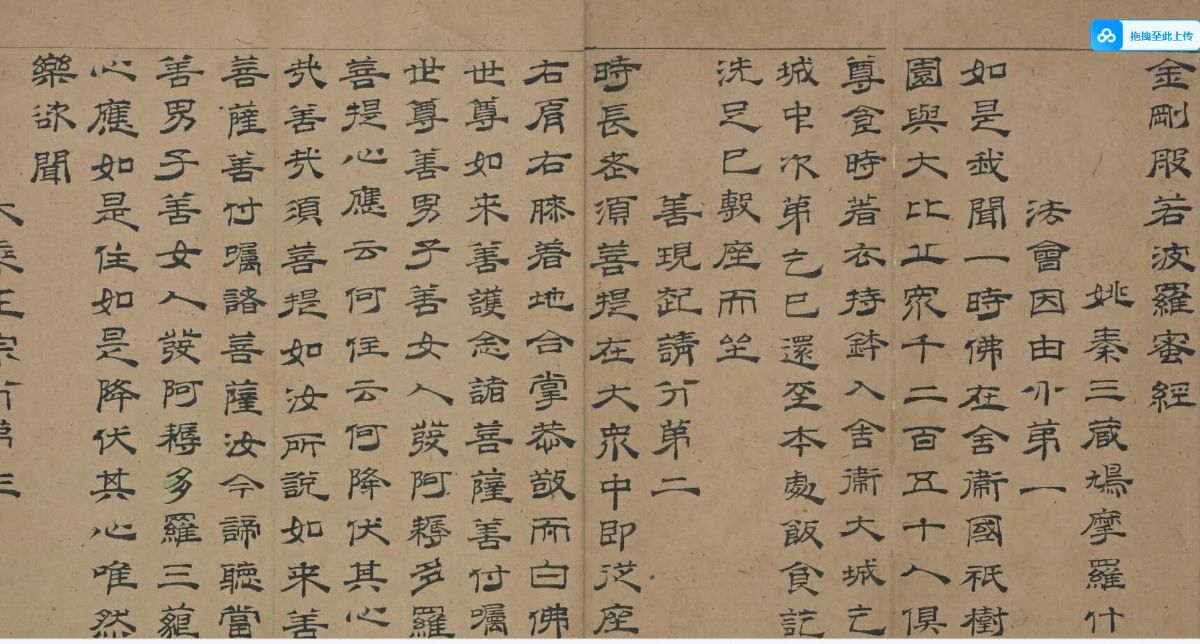 金剛般若波羅蜜經
姚秦三藏鳩摩羅什
法會因由分第一
如是我聞一時佛在舍衛國祇樹
園與大比丘眾千二百五十人俱
尊食時著衣持鉢入舍衛大城乞
城中次第乞已還至本處飯食訖
洗足已敷座而坐
善現起請分第二
時長老須菩提在大眾中即從座
右肩右膝着地合掌恭敬而白佛
世尊如來善護念諸菩薩善付囑
世尊善男子善女人發阿耨多羅
菩提心應云何住云何降伏其心
哉善哉須菩提如汝所說如來善
菩薩善付囑諸菩薩汝今諦聽當
善男子善女人發阿耨多羅三藐
心應如是住如是降伏其心唯然
樂欲聞
大乘正宗分第三
拖拽至此上传